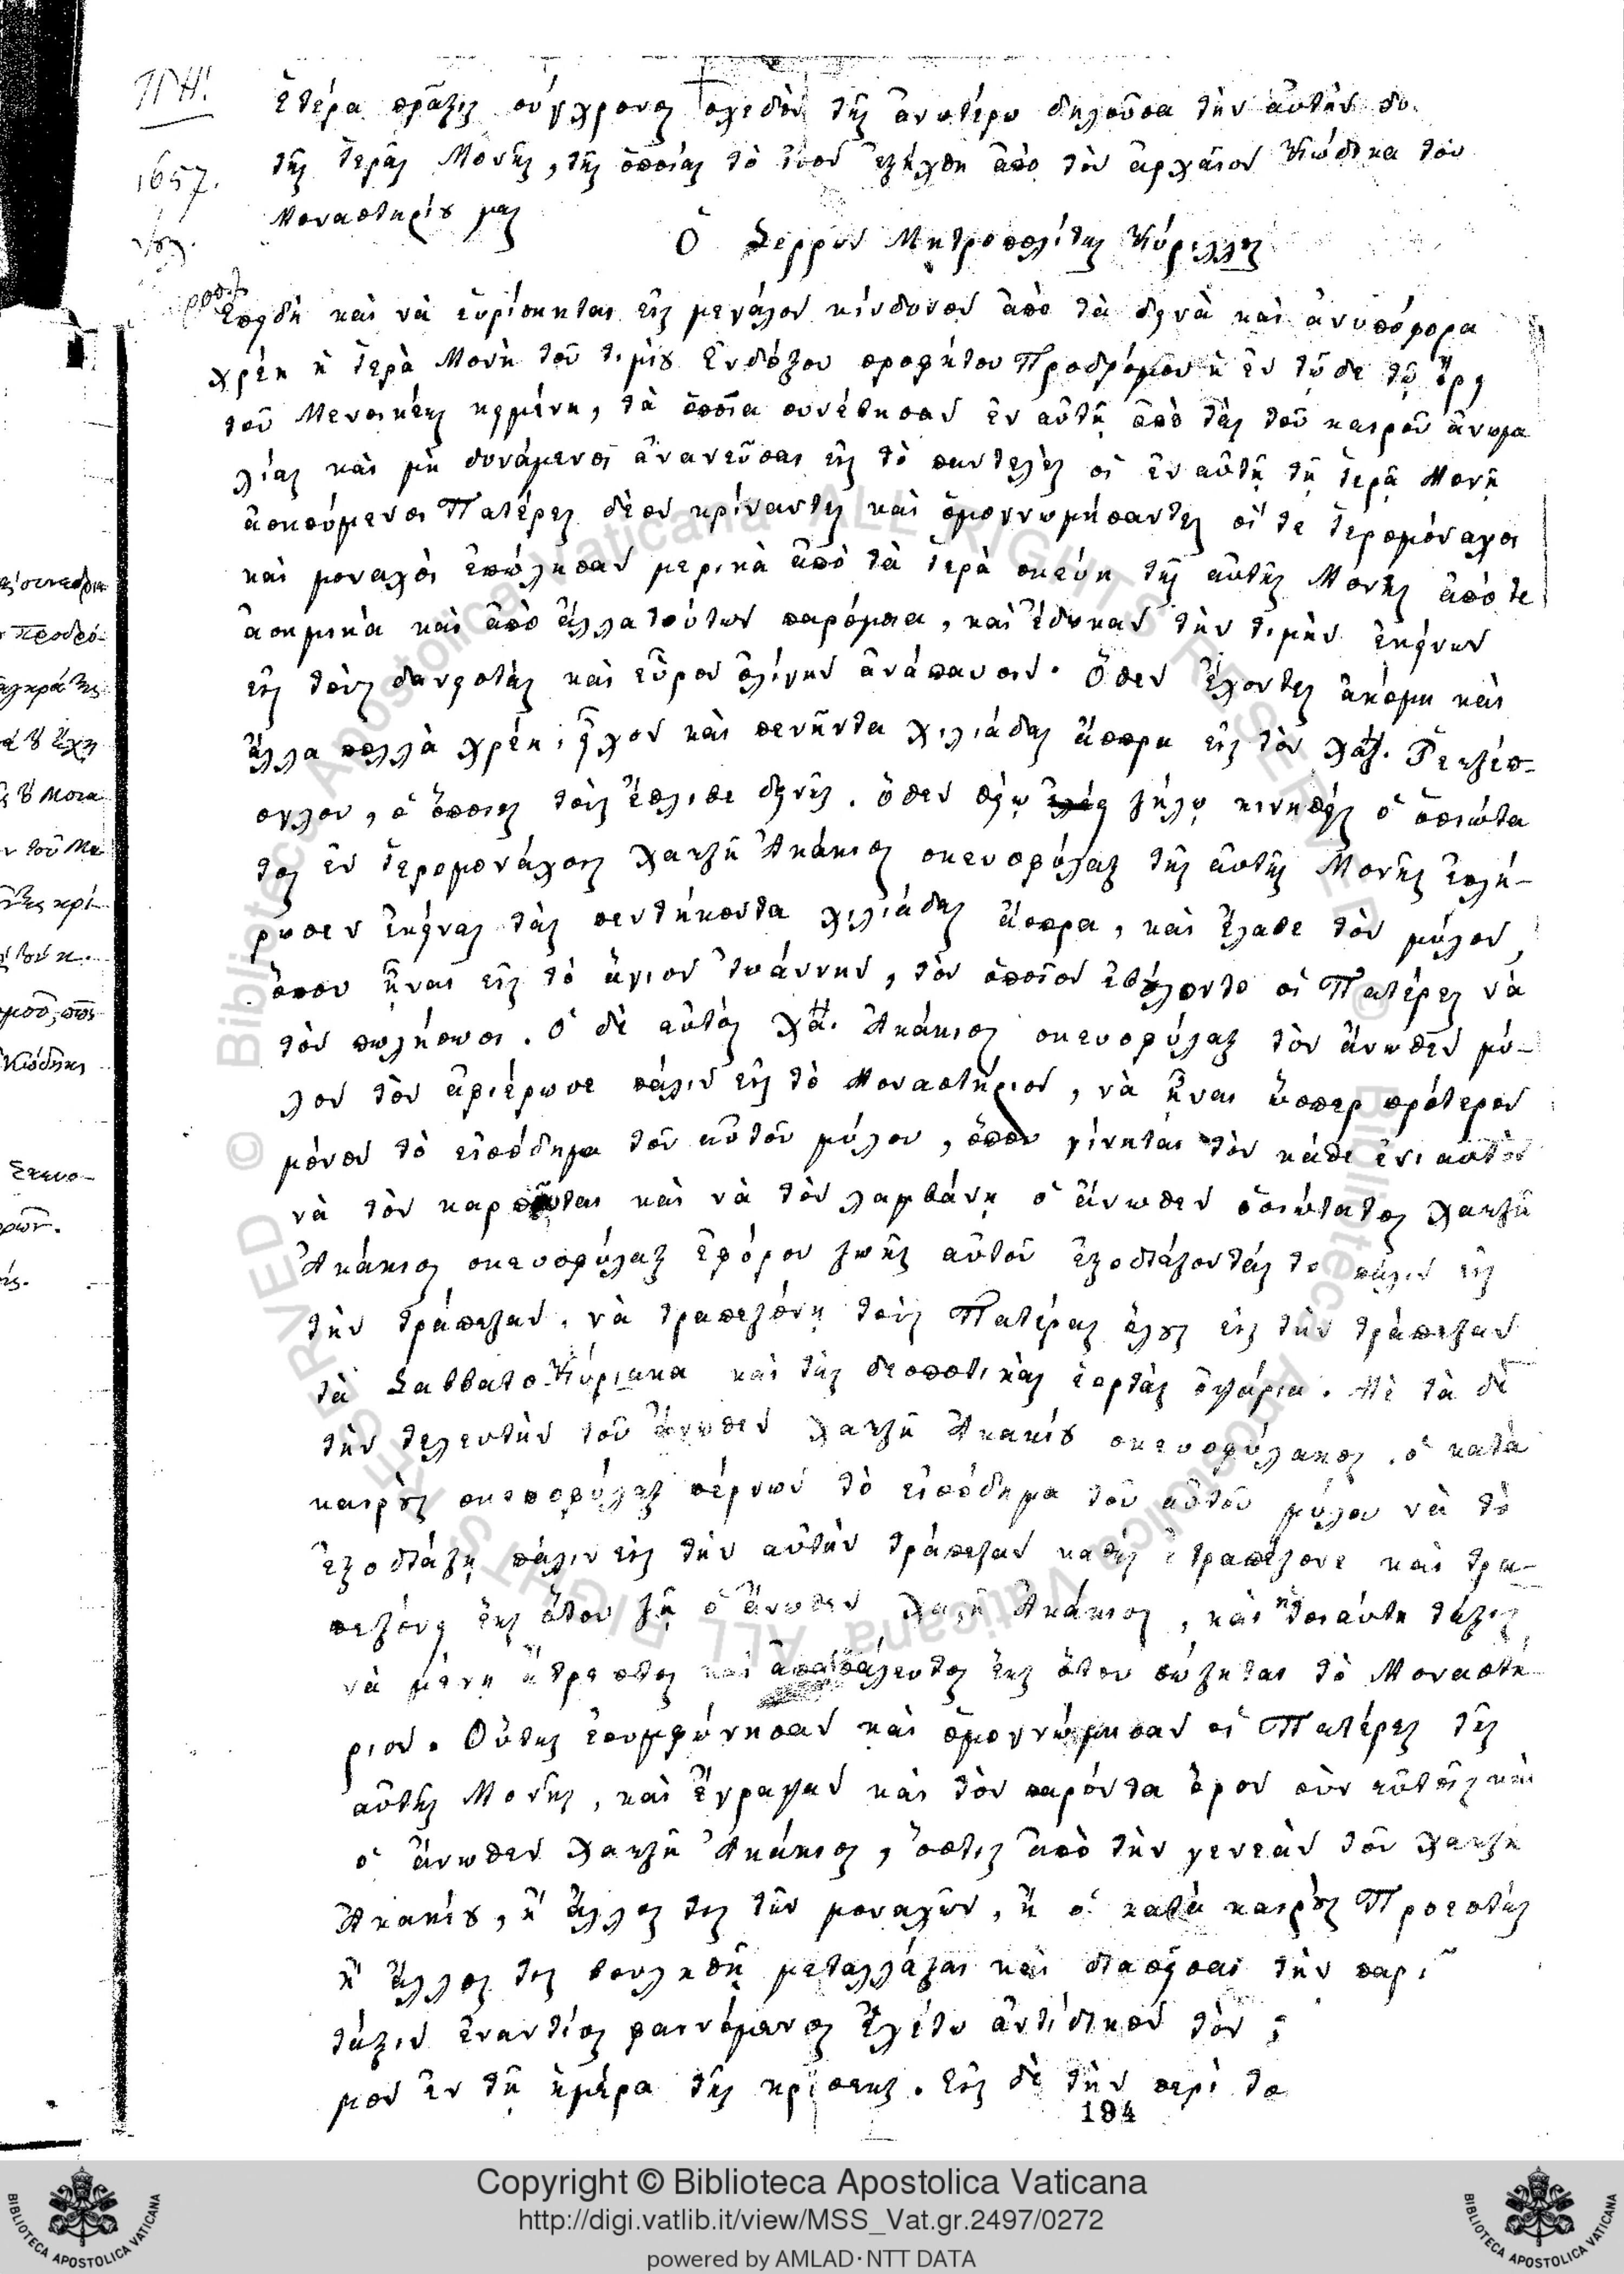 ΠΗ!
1657.
Ἑτέρα πρᾶξις σύγχρονος σχεδὸν τῆς ἀνωτέρω δηλοῦσα τὴν αὐτὴν
τῆς Ἱερᾶς Μονῆς, τῆς ὁποίας τὸ ἶσον ἐξήχθη ἀπὸ τὸν ἀρχαῖον Κώδικα τοῦ
Μοναστηρίȣ μας
Ὁ Σερρῶν Μητροπολίτης Κύριλλος
Ἐπειδὴ καὶ νὰ εὑρίσκηται εἰς μεγάλον κίνδυνον ἀπὸ τὰ δεινὰ καὶ ἀνυπόφορα
χρέη ἡ Ἱερὰ Μονὴ τοῦ τιμίȣ Ἐνδόξου προφήτου Προδρόμου ἡ ἐν τῷδε τῷ ὄρει
τοῦ Μενοικέως κειμένη, τὰ ὁποῖα συνέβησαν ἐν αὐτῇ ἀπὸ τὰς τοῦ καιροῦ ἀνωμα
λίας καὶ μὴ δυνάμενοι ἀνανεῦσαι εἰς τὸ παντελὲς οἱ ἐν αὐτῇ τῇ ἱερᾷ Μονῇ
ἀσκούμενοι Πατέρες δέον κρίναντες καὶ ὁμογνωμήσαντες οἵ τε ἱερομόναχοι
καὶ μοναχοὶ ἐπώλησαν μερικὰ ἀπὸ τὰ ἱερὰ σκεύη τῆς αὐτῆς Μονῆς ἀπό τε
ἀσημικὰ καὶ ἀπὸ ἄλλα τούτων παρόμοια, καὶ ἔδωκαν τὴν τιμὴν ἐκείνων
εἰς τοὺς δανειστὰς καὶ εὗρον ὀλίγην ἀνάπαυσιν. Ὅθεν ἔχοντες ἀκόμη καὶ
ἄλλα πολλὰ χρέη, εἶχον καὶ πενῆντα χιλιάδας ἄσπρα εἰς τὸν χατζ.
ογλου, ὁ ὁποῖος τοὺς ἔθλιβε δεινῶς. ὅθεν θείῳ ζήλῳ κινηθεὶς ὁ ὁσιώτα
τος ἐν ἱερομονάχοις χατζῆ Ἀκάκιος σκευοφύλαξ τῆς αὐτῆς Μονῆς ἐπλή-
ρωσεν ἐκείνας τὰς πεντήκοντα χιλιάδας ἄσπρα, καὶ ἔλαβε τὸν μύλον,
ὅπου εἶναι εἰς τὸ ἅγιον Ἰωάννην, τὸν ὁποῖον ἐβούλοντο οἱ Πατέρες νὰ
τὸν πωλήσωσι. Ὁ δὲ αὐτὸς χα. Ἀκάκιος σκευοφύλαξ τὸν ἄνωθεν μύ-
λον τὸν ἀφιέρωσε πάλιν εἰς τὸ Μοναστήριον, νὰ εἶναι ὥσπερ πρότερον
μόνον τὸ εἰσόδημα τοῦ αὐτοῦ μύλου, ὅπου γίνηται τὸν κάθε ἐνιαυτὸν
νὰ τὸν καρποῦται καὶ νὰ τὸν λαμβάνῃ ὁ ἄνωθεν ὁσιώτατος χατζῆ
Ἀκάκιος σκευοφύλαξ ἐφόρου ζωῆς αὐτοῦ ἐξοδιάζοντάς το πάλιν εἰς
τὴν τράπεζαν, νὰ τραπεζόνῃ τοὺς Πατέρας ὅλȣς εἰς τὴν τράπεζαν
τὰ Σαββατοκύριακα καὶ τὰς δεσποτικὰς ἑορτὰς ὀψάρια. Μὲ τὰ δὲ
τὴν τελευτὴν τοῦ ἄνωθεν χατζῆ Ἀκακίȣ σκευοφύλακος, ὁ κατὰ
καιρȣς σκευοφύλαξ πέρνων τὸ εἰσόδημα τοῦ αὐτοῦ μύλου νὰ τὸ
ἐξοδιάζῃ πάλιν εἰς τὴν αὐτὴν τράπεζαν καθὼς ἐτραπέζονε καὶ τρα-
πεζόνει ἕως ὅτου ζῇ ὁ ἄνωθεν χατζῆ Ἀκάκιος, καὶ ἡ τοιαύτη τάξις
νὰ μένῃ ἄτρεπτος καὶ ἀπαρασάλευτος ἕως ὅτου σώζηται τὸ Μοναστή-
ριον. Οὕτως ἐσυμφώνησαν καὶ ὁμογνώμησαν οἱ Πατέρες τῆς
αὐτῆς Μονῆς, καὶ ἔγραψαν καὶ τὸν παρόντα ὅρον σὺν αὐτοῖς καὶ
ὁ ἄνωθεν χατζῆ Ἀκάκιος, ὅστις ἀπὸ τὴν γενεὰν τοῦ χατζῆ
Ἀκακίȣ, ἢ ἄλλος τις τῶν μοναχῶν, ἢ ὁ κατὰ καιρȣς Προεστὼς
ἢ ἄλλος τις βουληθῇ μεταλλάξαι καὶ διασεῖσαι τὴν
τάξιν ἐναντίος φαινόμενος ἐχέτω ἀντίδικον τὸν
μον ἐν τῇ ἡμέρᾳ τῆς κρίσεως. Εἰς δὲ τὴν περὶ το
194
Copyright © Biblioteca Apostolica Vaticana
http://digi.vatlib.it/view/MSS_Vat.gr.2497/0272
powered by AMLAD·NTT DATA